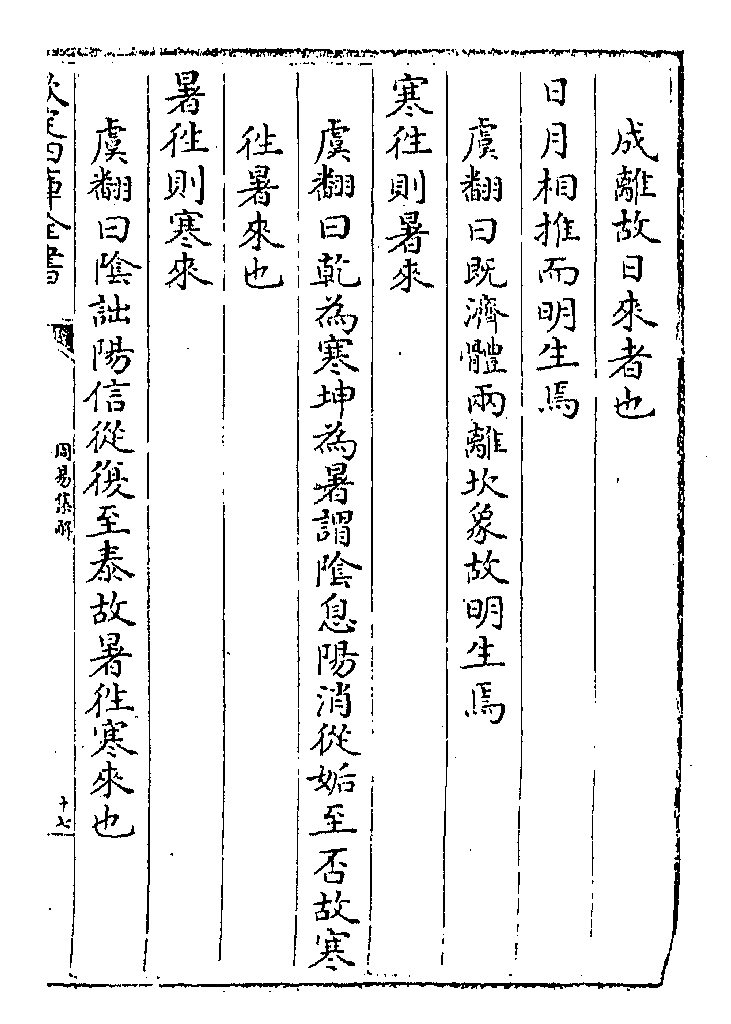 成離故日來者也
日月相推而明生焉
虞翻曰既濟體兩離坎象故明生焉
寒徃則暑來
虞翻曰乾為寒坤為暑謂陰息陽消從姤至否故寒
徃暑來也
暑徃則寒來
虞翻曰陰詘陽信從復至泰故暑徃寒來也
欽定四庫全書
周易集解
十七